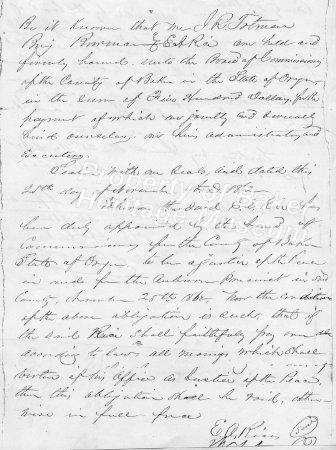 Be it known that we J. R. Totman
Benj Bowman & E. S. Rice are held and
firmly bound unto the Board of Commissioners
of the County of Baker in the State of Oregon
in the sum of Five Hundred Dollars, for the
payment of which we jointly and severally
bind ourselves, our heirs, administrators and
Executors.
Sealed with our Seals, and dated this
25th day of November A.D. 186
Whereas the said E. S. Rice has
been duly appointed by the Board of
Commissioners for the County of Baker
State of Oregon to be a justice of the Peace
in and for the Auburn Precinct in said
County, November 25th 186 Now the condition
of the above obligation is such, that if
the said Rice shall faithfully pay over
according to law all moneys which shall
virtue of his Office as Justice of the Peace,
then this obligation shall be void, other-
wise in full force
E. S. Rice
Property of Baker
Heritage Museum